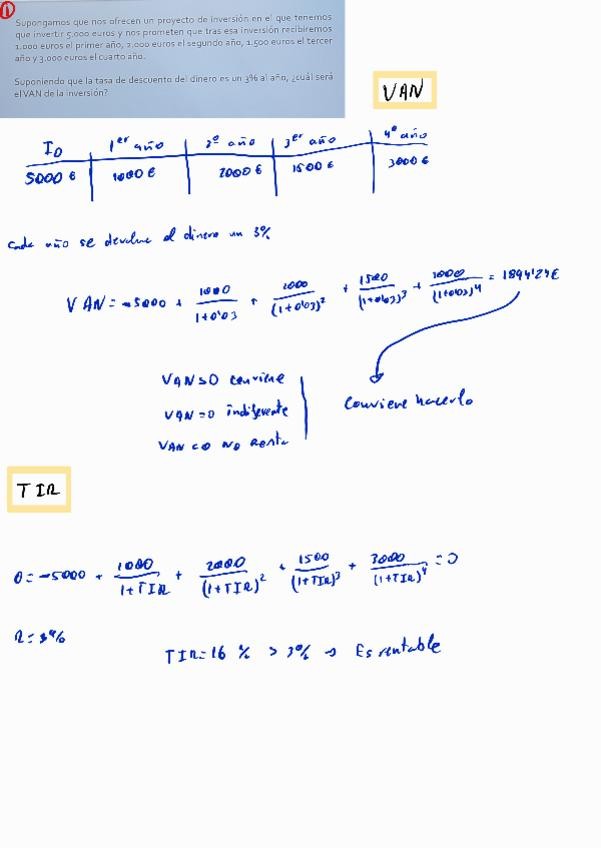 1
Supongamos que nos ofrecen un proyecto de inversión en el que tenemos
que invertir 5.000 euros y nos prometen que tras esa inversión recibiremos
1.000 euros el primer año, 2.000 euros el segundo año, 1.500 euros el tercer
año y 3.000 euros el cuarto año.
Suponiendo que la tasa de descuento del dinero es un 3% al año, ¿cuál será
el VAN de la inversión?
VAN
I0 1er año 2º año 3er año 4º año
5000 € 1000 € 2000 € 1500 € 3000 €
Cada año se devalua el dinero un 3%
VAN = -5000 + 1000/(1+0'03) + 2000/(1+0'03)² + 1500/(1+0'03)³ + 3000/(1+0'03)⁴ = 1894'24€
VAN>0 conviene
VAN=0 indiferente
VAN<0 no renta
Conviene hacerlo
TIR
0 = -5000 + 1000/(1+TIR) + 2000/(1+TIR)² + 1500/(1+TIR)³ + 3000/(1+TIR)⁴ = 0
R=3%
TIR=16 % > 3% → Es rentable